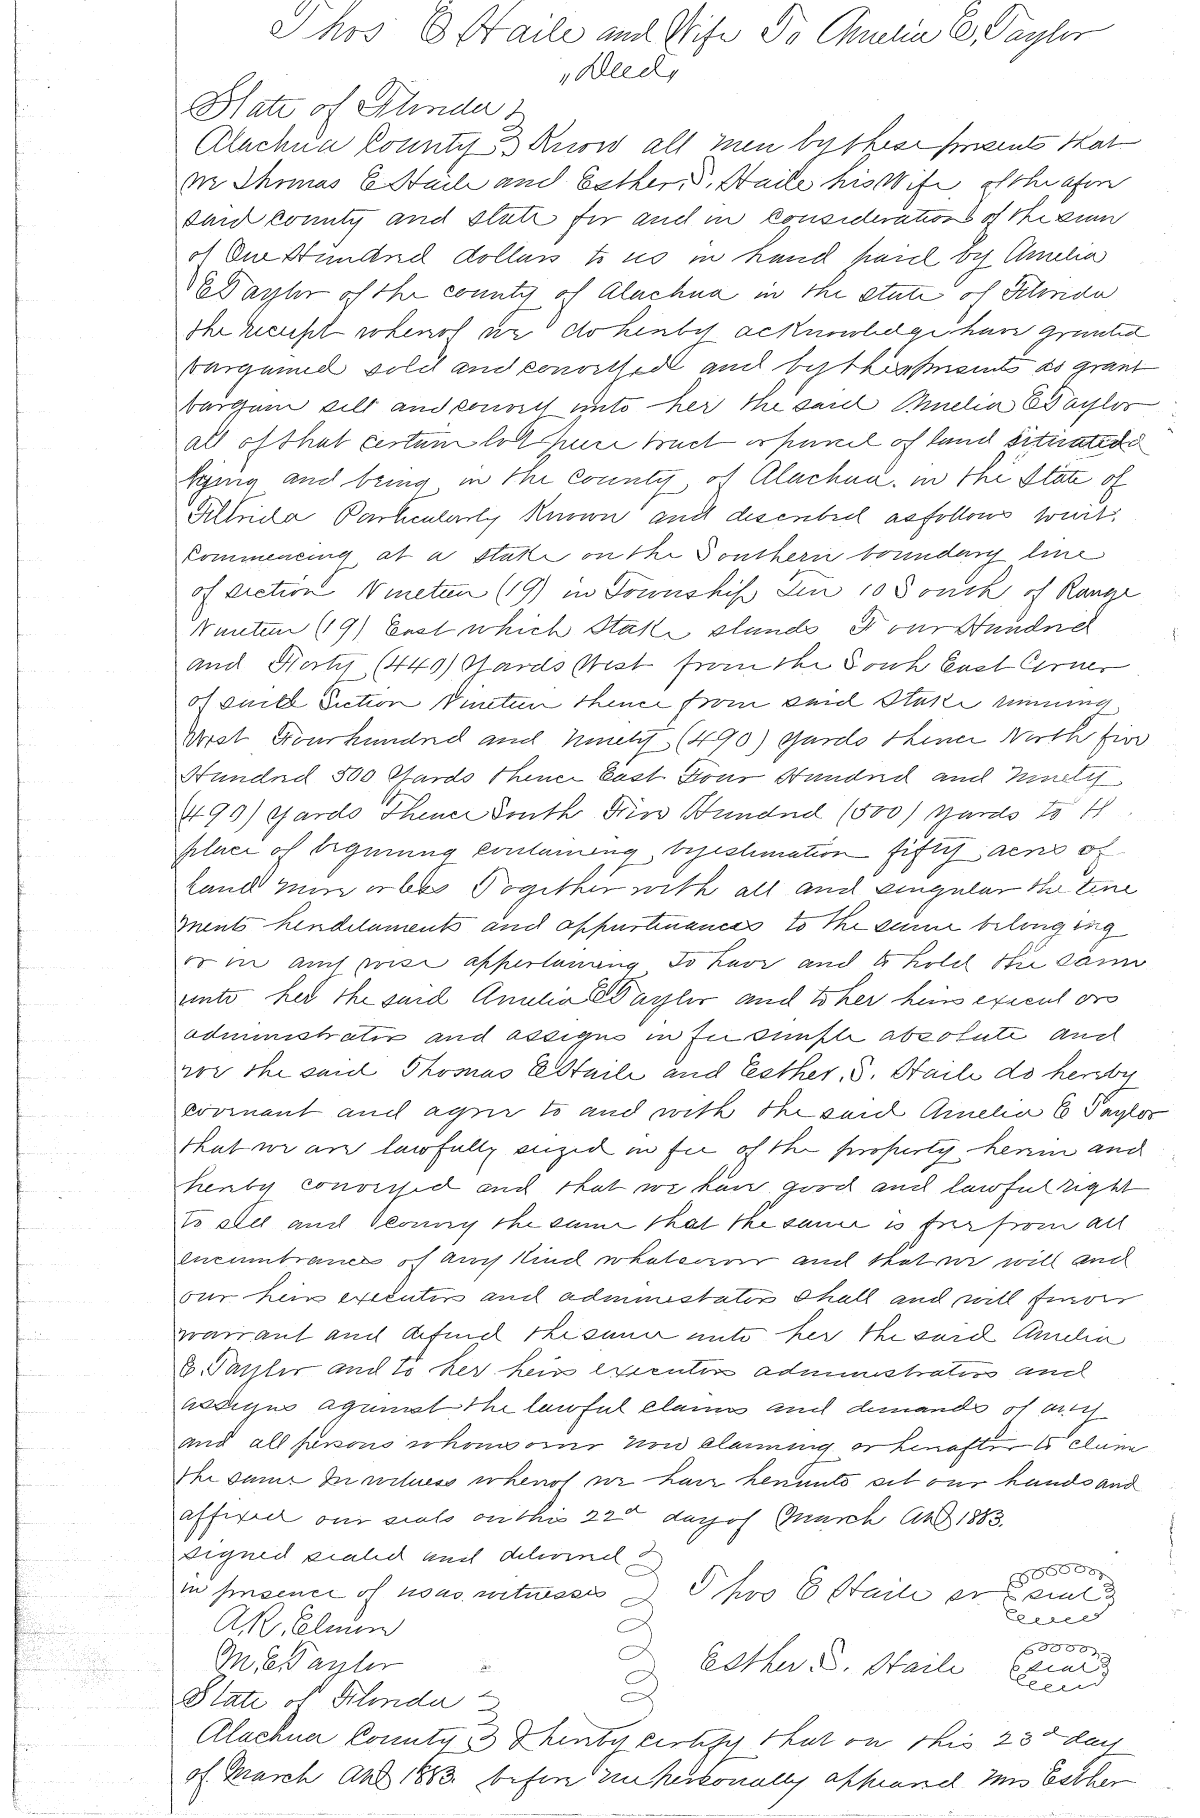 Thos E Haile and Wife To Amelia E, Taylor
"Deed"
State of Florida
Alachua County Know all men by these presents that
we Thomas E Haile and Esther, S. Haile his Wife of the afore
said county and state for and in consideration of the sum
of One Hundred dollars to us in hand paid by Amelia
E Taylor of the county of Alachua in the state of Florida
the receipt whereof we do hereby acknowledge have granted
bargained sold and conveyed and by these presents do grant
bargain sell and convey unto her the said Amelia E Taylor
all of that certain lot piece tract or parcel of land situated
lying and being in the county of Alachua. in the State of
Florida Particularly Known and described as follows towit.
Commencing at a stake on the Southern boundary line
of section Nineteen (19) in Township Ten 10 South of Range
Nineteen (19) East which Stake stands Four Hundred
and Forty (440) Yards West from the South East Corner
of said Section Nineteen thence from said Stake running
West Four hundred and ninety (490) yards thence North five
Hundred 500 Yards thence East Four Hundred and Ninety
(490) yards Thence South Five Hundred (500) yards to H
place of begining containing by estimation fifty acres of
land more or less Together with all and singular the tene
ments heredilaments and appurtenances to the same belonging
or in any wise appertaining To have and to hold the same
unto her the said Amelia E Taylor and to her heirs executors
administrators and assigns in fee simple absolute and
we the said Thomas E Haile and Esther. S. Haile do hereby
covenant and agree to and with the said Amelia E Taylor
that we are lawfully seized in fee of the property herein and
hereby conveyed and that we have good and lawful right
to sell and convey the same that the same is free from all
encumbrances of any Kind whatsoever and that we will and
our heirs executors and administators shall and will forever
warrant and defend the same unto her the said Amelia
E. Taylor and to her heirs executors administrators and
assigns against the lawful claims and demands of any
and all persons whomsoever now claiming or hereafter to claim
the same In witness whereof we have hereunto set our hands and
affixed our seals on this 22d day of March AD 1883.
signed sealed and delivered
in presence of us as witnesses Thos E Haile sr seal
A.R, Elmore
M, E, Taylor Esther. S. Haile seal
State of Florida
Alachua County I hereby certify that on this 23d day
of March AD 1883. before me personally appeared Mrs Esther